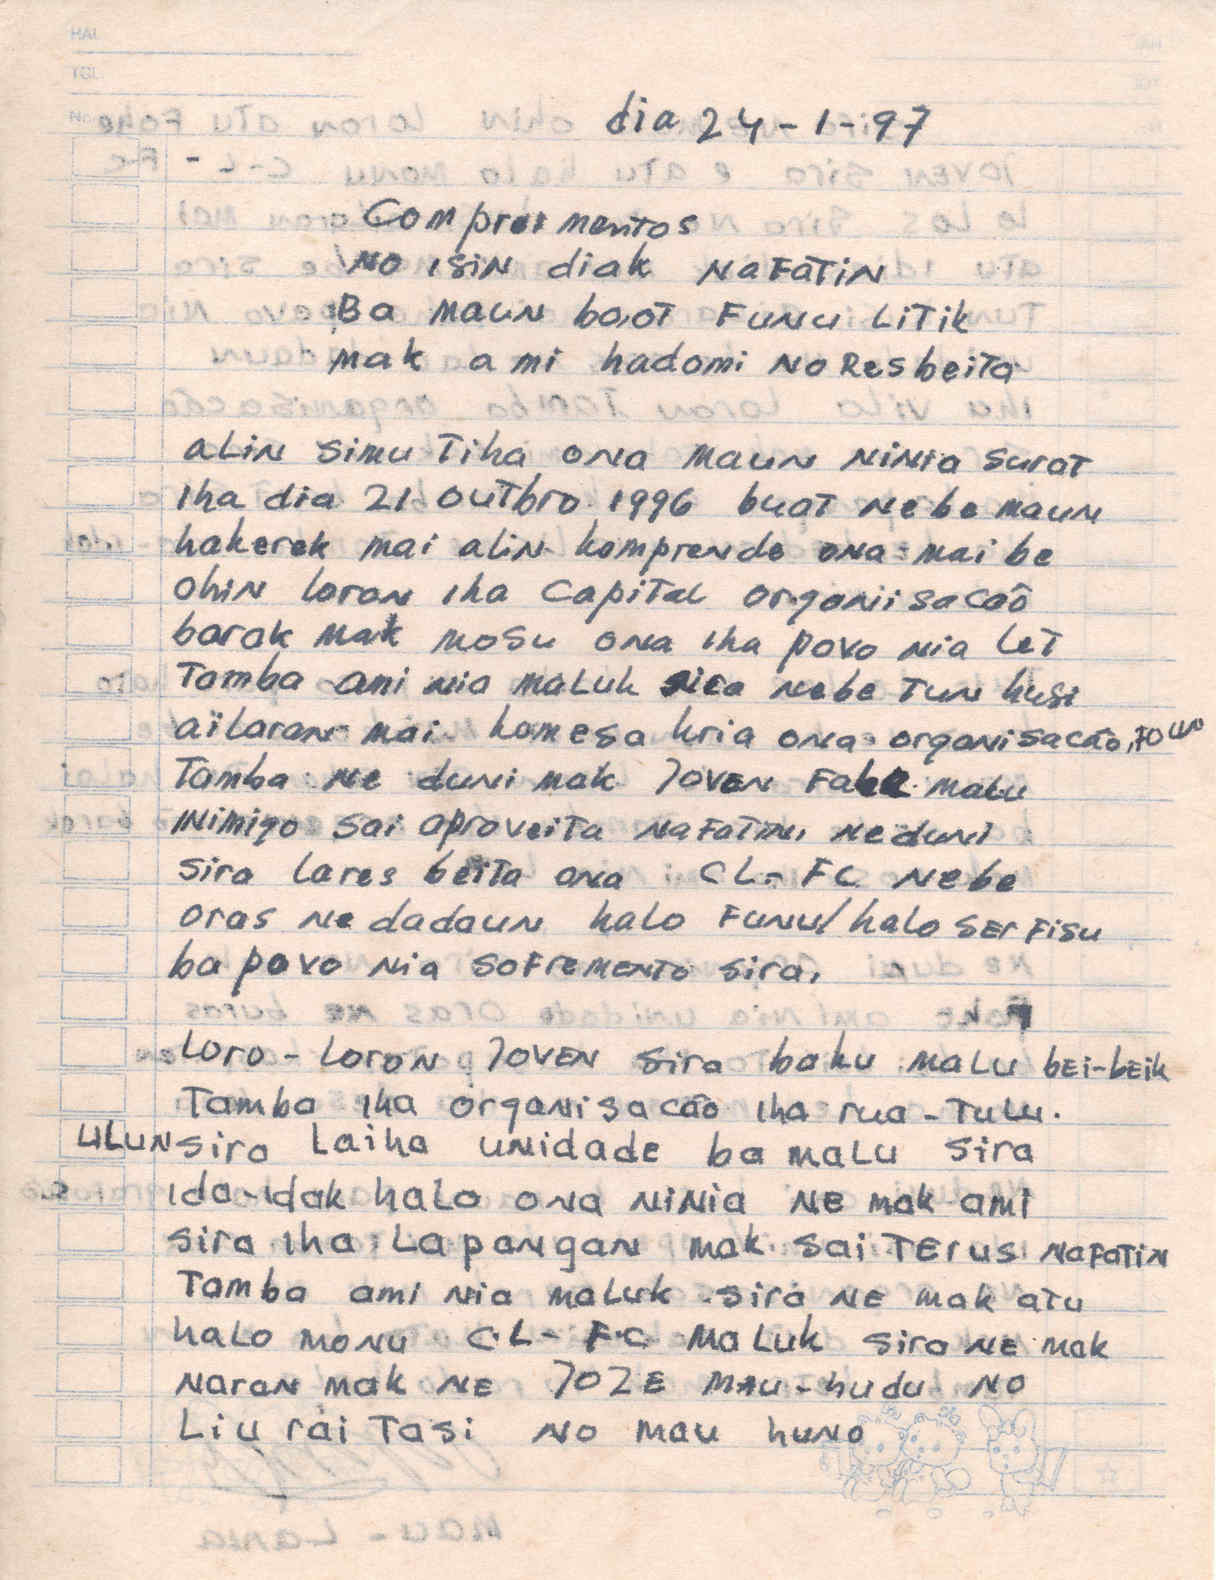 HAL
TGL
No
dia 24-1-97
Comprimentos
No isin diak nafatin
Ba maun boot Funu Litik
mak ami hadomi no Resbeita
alin simu Tiha ona maun ninia surat
iha dia 21 outbro 1996 buat nebe maun
hakerek mai alin komprende ona mai be
ohin loron iha Capital organiisacaõ
barak mak mosu ona iha povo nia let
Tamba ami nia maluk sira nebe Tun husi
aïlaran mai komesa kria ona organisacaõ, Foun
Tamba ne duni mak Joven Fahe malu
inimigo sai aproveita nafatin, neduni
sira lares beita ona CL-FC nebe
oras ne dadaun halo Funu/halo serfisu
ba povo nia sofremento sira,
Loro-Loron Joven sira baku malu bei-beik
Tamba iha organisacaõ iha rua-Tulu.
ulun sira Laiha unidade ba malu sira
ida-idak halo ona ninia ne mak ami
sira iha Lapangan mak sai Terus nafatin
Tamba ami nia maluk sira ne mak atu
halo monu C.L-F.C maluk sira ne mak
naran mak ne Joze Mau-hudu no
Liu rai Tasi no mau huno
mau-Lania